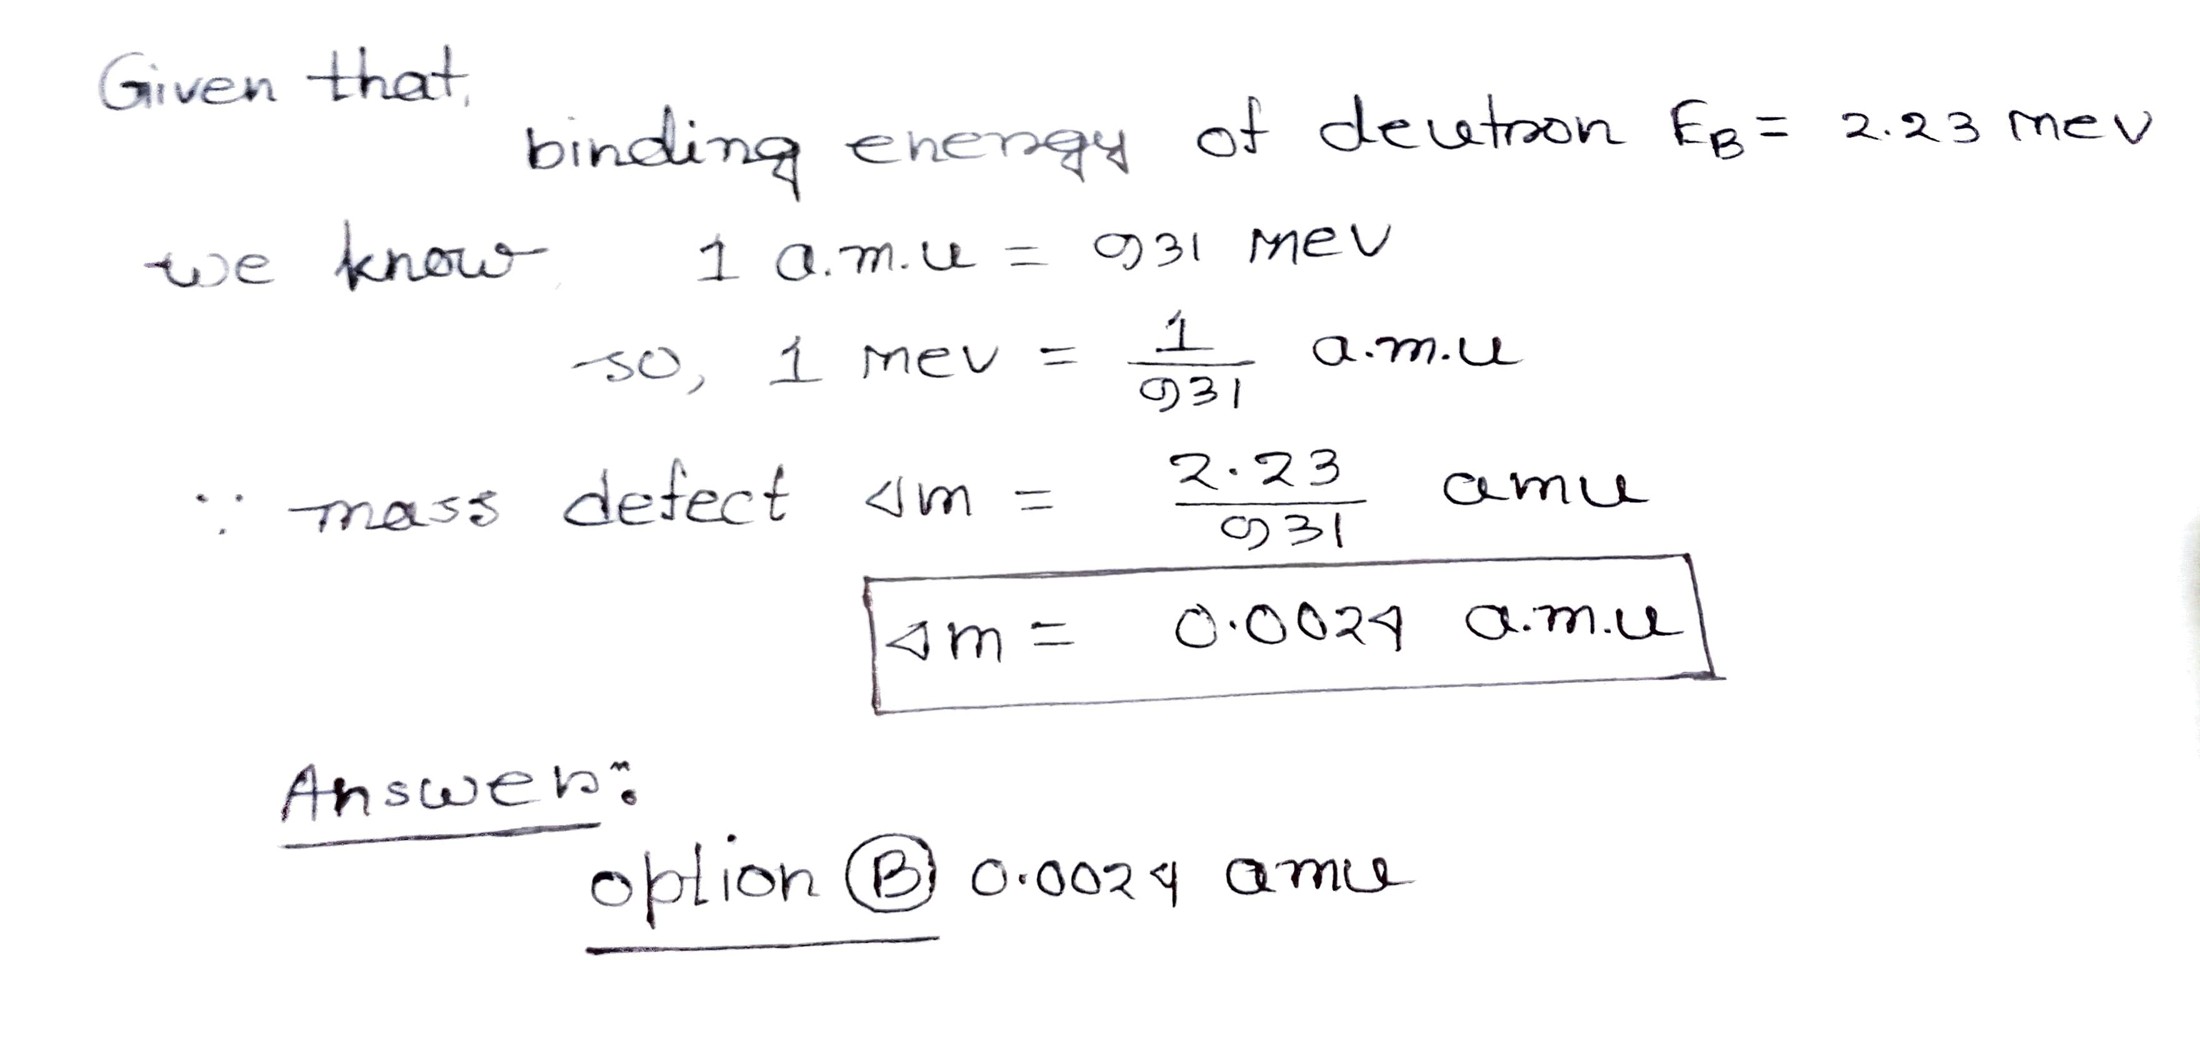 Given that,
binding energy of deutron E_B = 2.23 mev
we know 1 a.m.u = 931 mev
so, 1 mev = 1/931 a.m.u
∵ mass defect Δm = 2.23/931 amu
Δm = 0.0024 a.m.u
Answer:
option Ⓑ 0.0024 amu